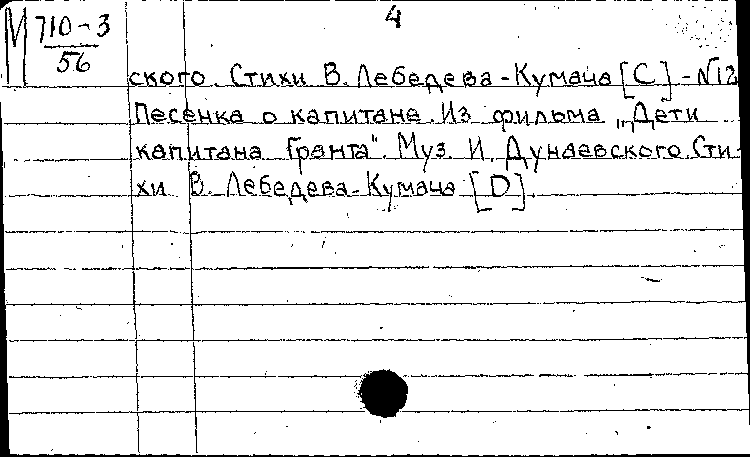 М 710-3
56
4
ского. Стихи В. Лебедева-Кумача [С] - №12
Песенка о капитане. Из фильма „Дети
капитана Гранта". Муз. И. Дунаевского. Сти-
хи В. Лебедева-Кумача [D].